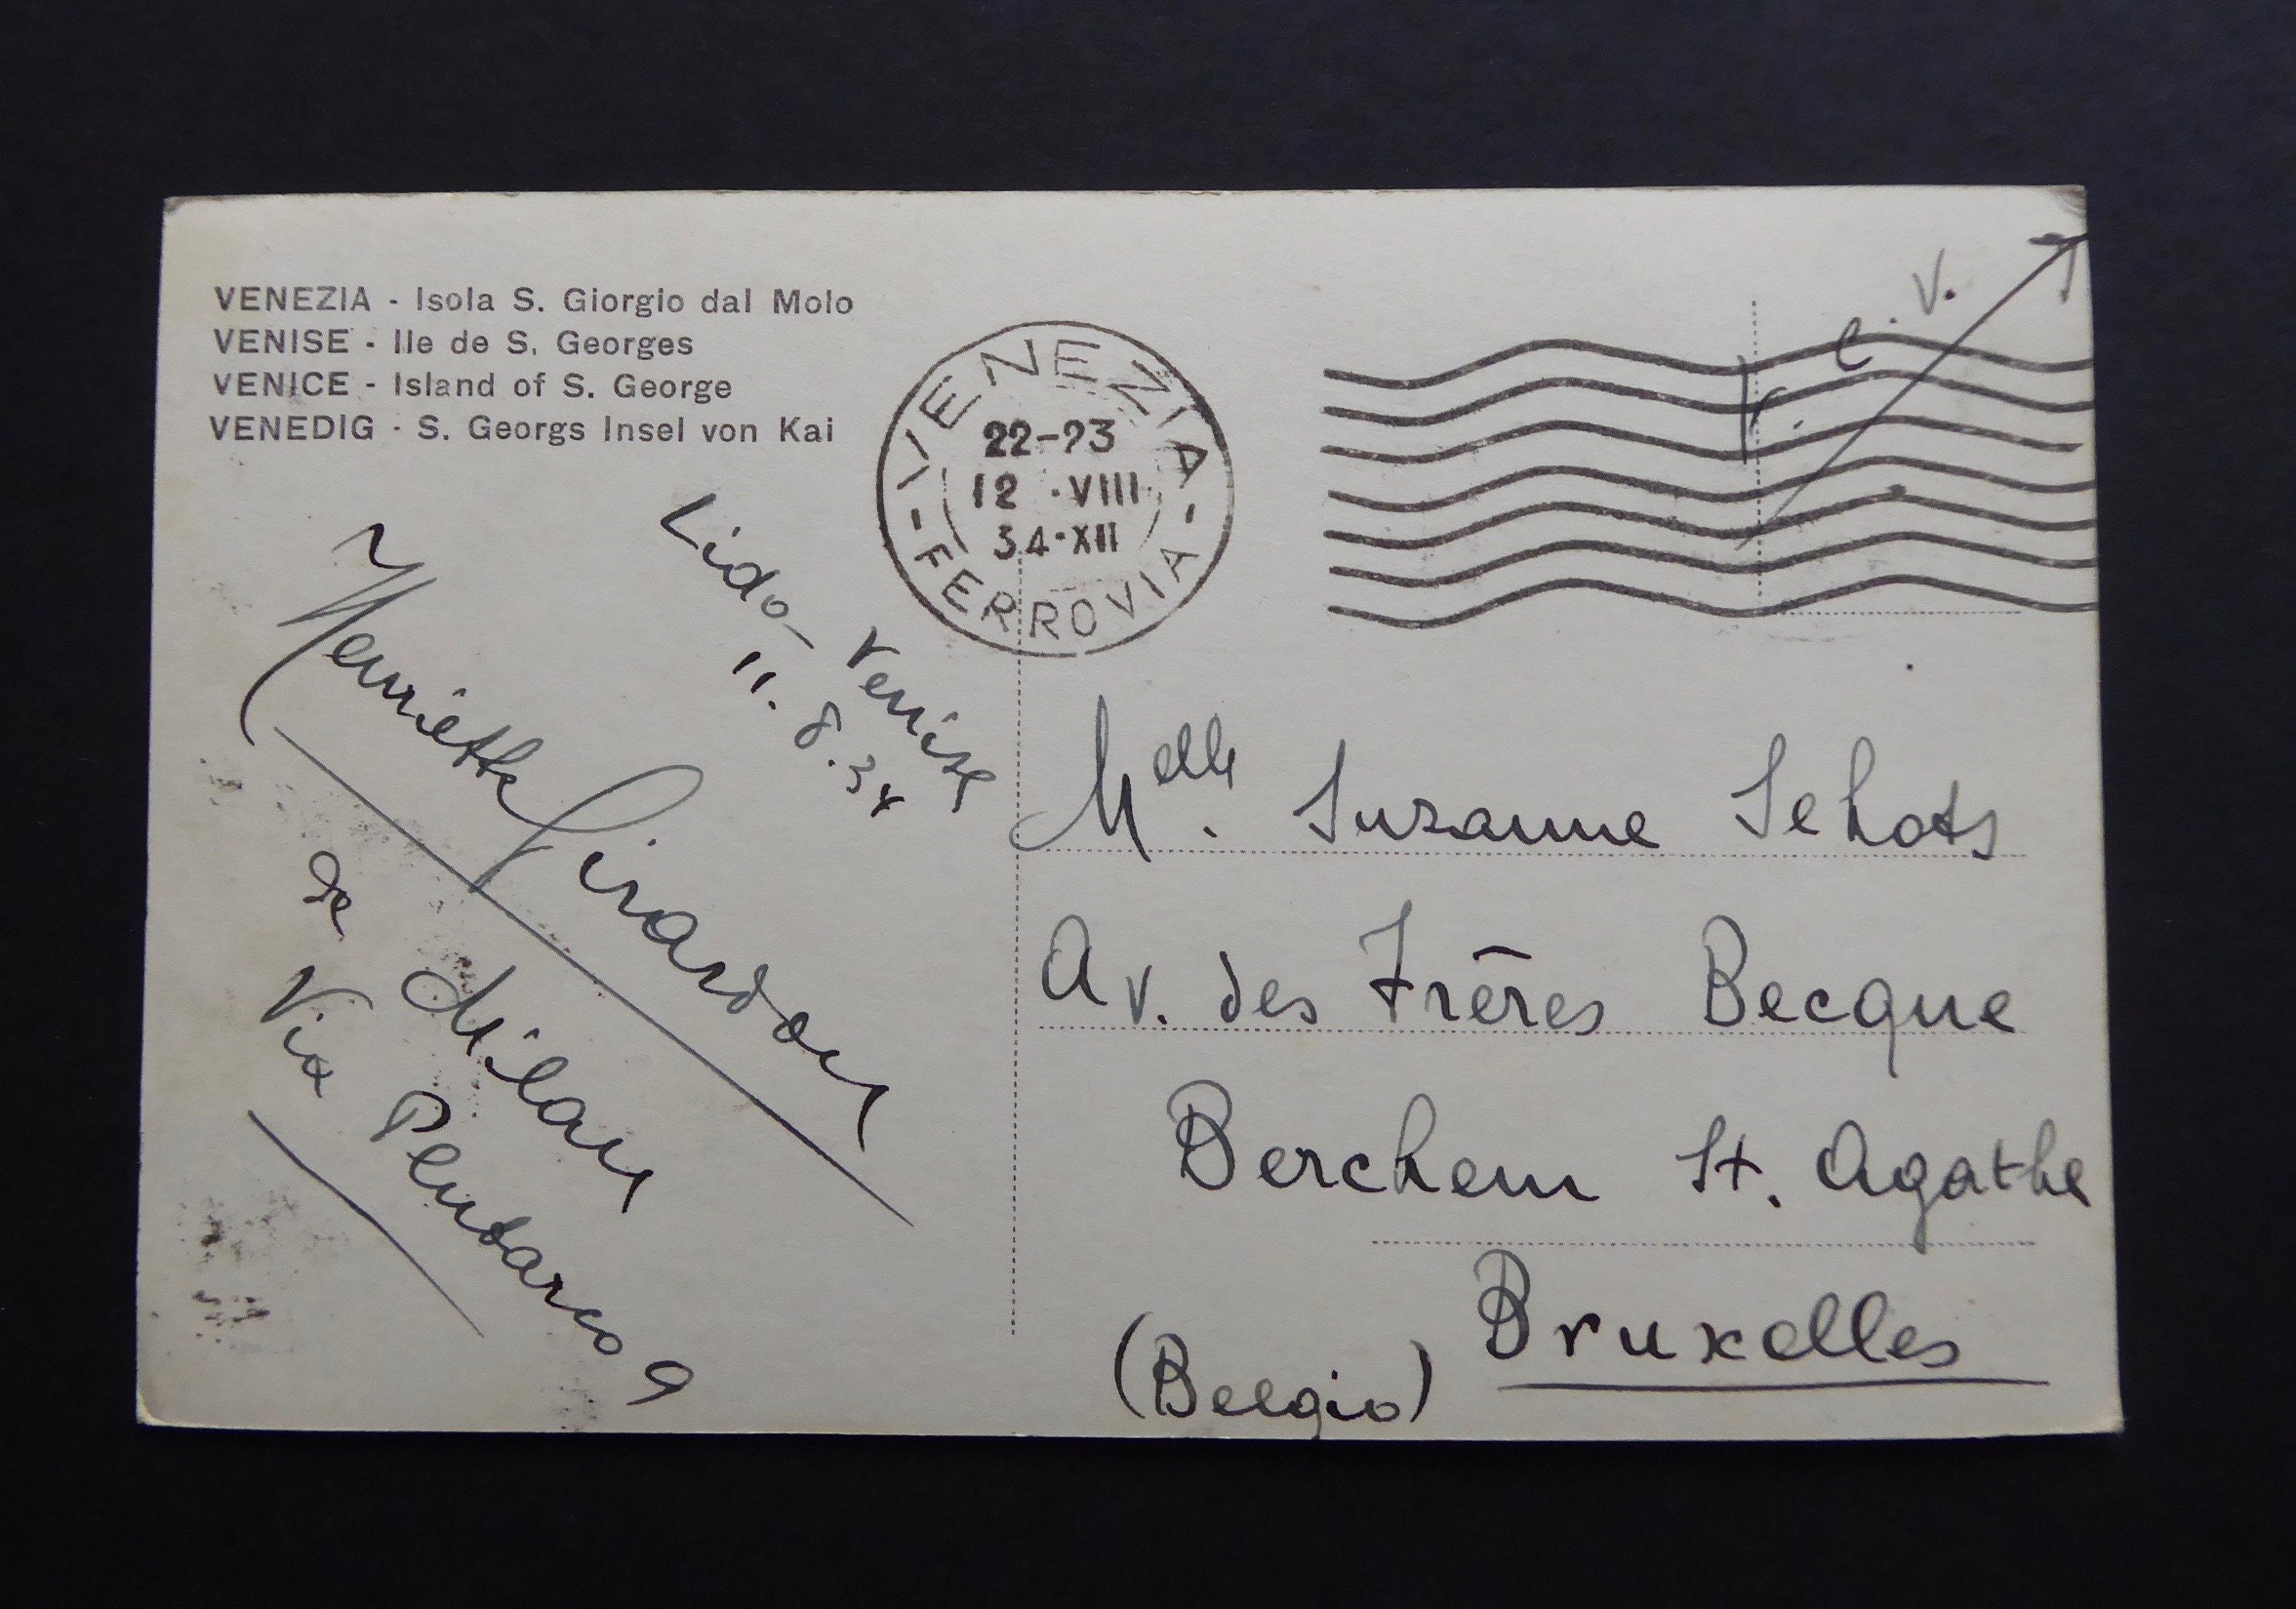 VENEZIA - Isola S. Giorgio dal Molo
VENISE - Ile de S. Georges
VENICE - Island of S. George
VENEDIG - S. Georgs Insel von Kai
VENEZIA
22-23
12 .VIII.
34-XII
- FERROVIA -
v. c. v.
Lido - Venise
11. 8. 34
Henriette Girardon
de Milan
Via Plutarco 9
Melle. Suzanne Sehots
Av. des Frères Becque
Berchem St. Agathe
Bruxelles
(Belgio)